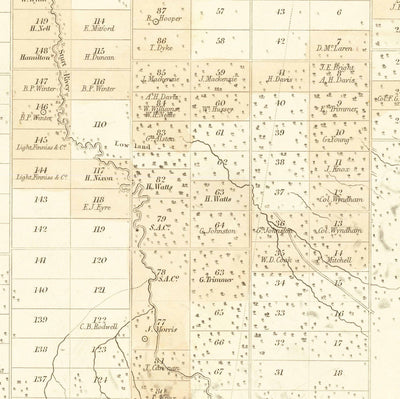 87
57
43
6
149
H. Nell
114
E. Mitford
R. G. Hooper
86
T. Dyke
58
42
7
D. McLaren
148
Hamilton
115
H. Duncan
147
B.P. Winter
116
B.P. Winter
85
J. Mackenzie
59
J. Mackenzie
41
H. Davis
8
A.H. Davis
146
B.P. Winter
A.H. Davis
84
W. Williams
60
40
9
110
145
Light, Finniss & Co.
83
61
39
10
G. Young
Low Land
144
Light, Finniss & Co.
117
H. Nixon
62
38
11
J. Knox
82
H. Watts
143
118
E.J. Eyre
63
H. Watts
37
12
Col. Wyndham
142
119
79
S.A.Co.
64
G. Johnston
36
G. Johnston
13
Col. Wyndham
141
120
35
W.D. Cook
14
Mitchell
78
S.A.Co.
63
G. Trimmer
140
121
34
15
139
122
C.B. Rodwell
77
J. Morris
65
33
16
138
123
66
32
17
137
124
67
31
18